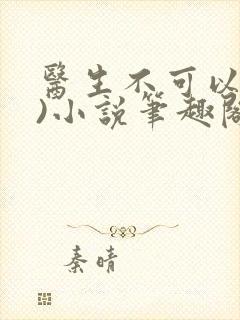 醫生不可以
)小說筆趣閣
秦晴